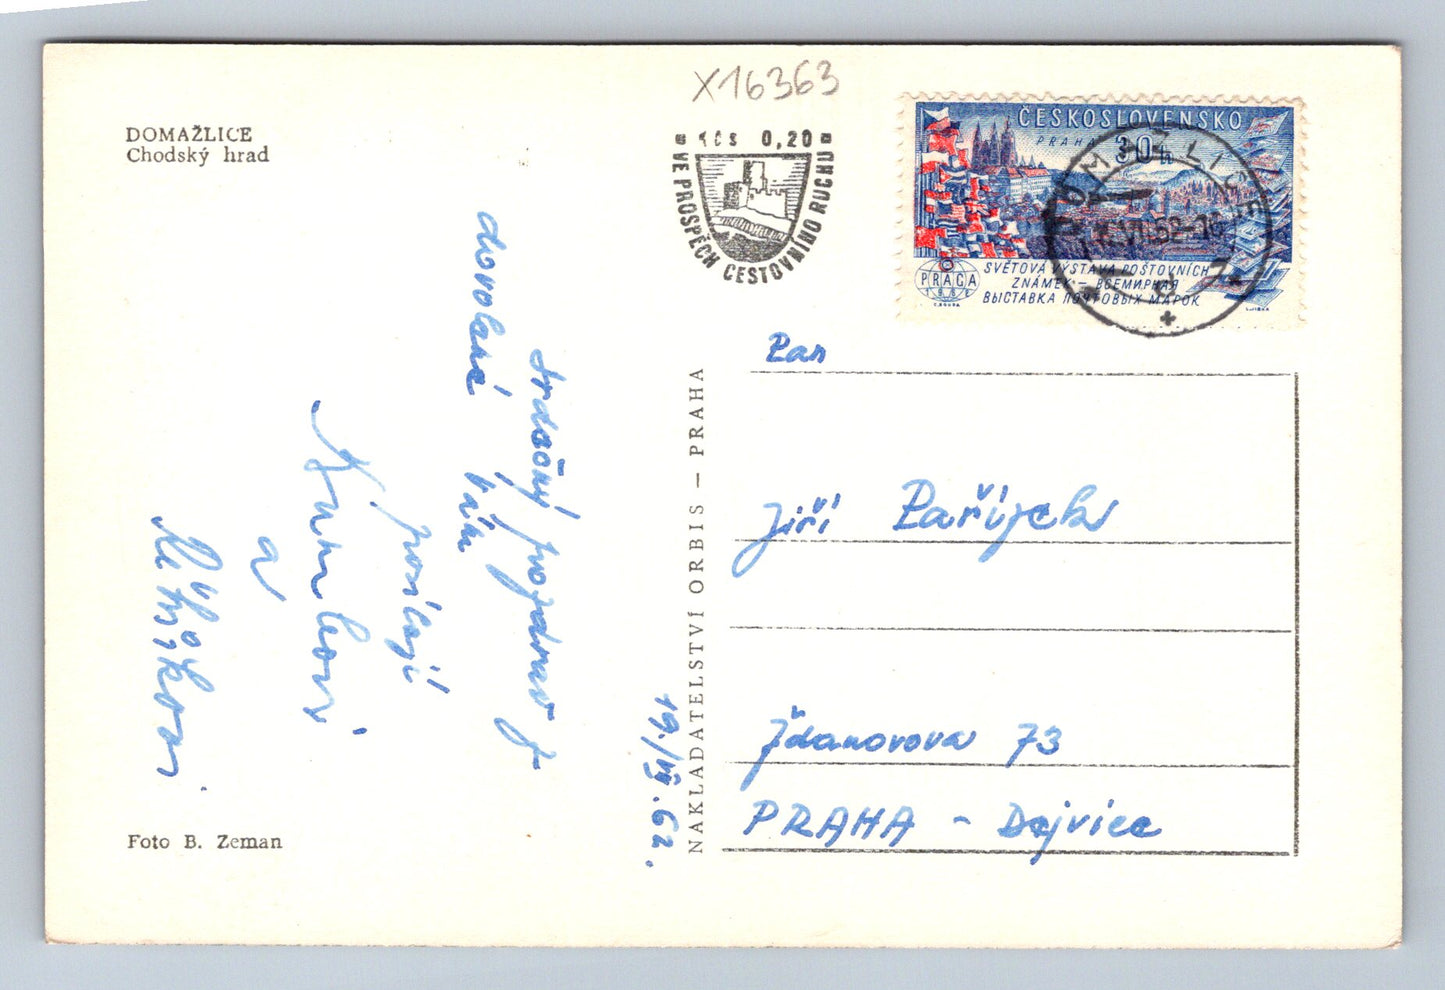 X16363
DOMAŽLICE
Chodský hrad
Kčs 0,20
VE PROSPĚCH CESTOVNÍHO RUCHU
ČESKOSLOVENSKO
PRAHA 30h
PRAGA
1962
SVĚTOVÁ VÝSTAVA POŠTOVNÍCH
ZNÁMEK – ВСЕМИРНАЯ
ВЫСТАВКА ПОЧТОВЫХ МАРОК
DOMAŽLICE
VII.62-16
Srdečný pozdrav z
dovolené Vám
posílají
a
19./VII.62.
NAKLADATELSTVÍ ORBIS – PRAHA
Pan
Jiří Pařízek
Ždanovova 73
PRAHA - Dejvice
Foto B. Zeman